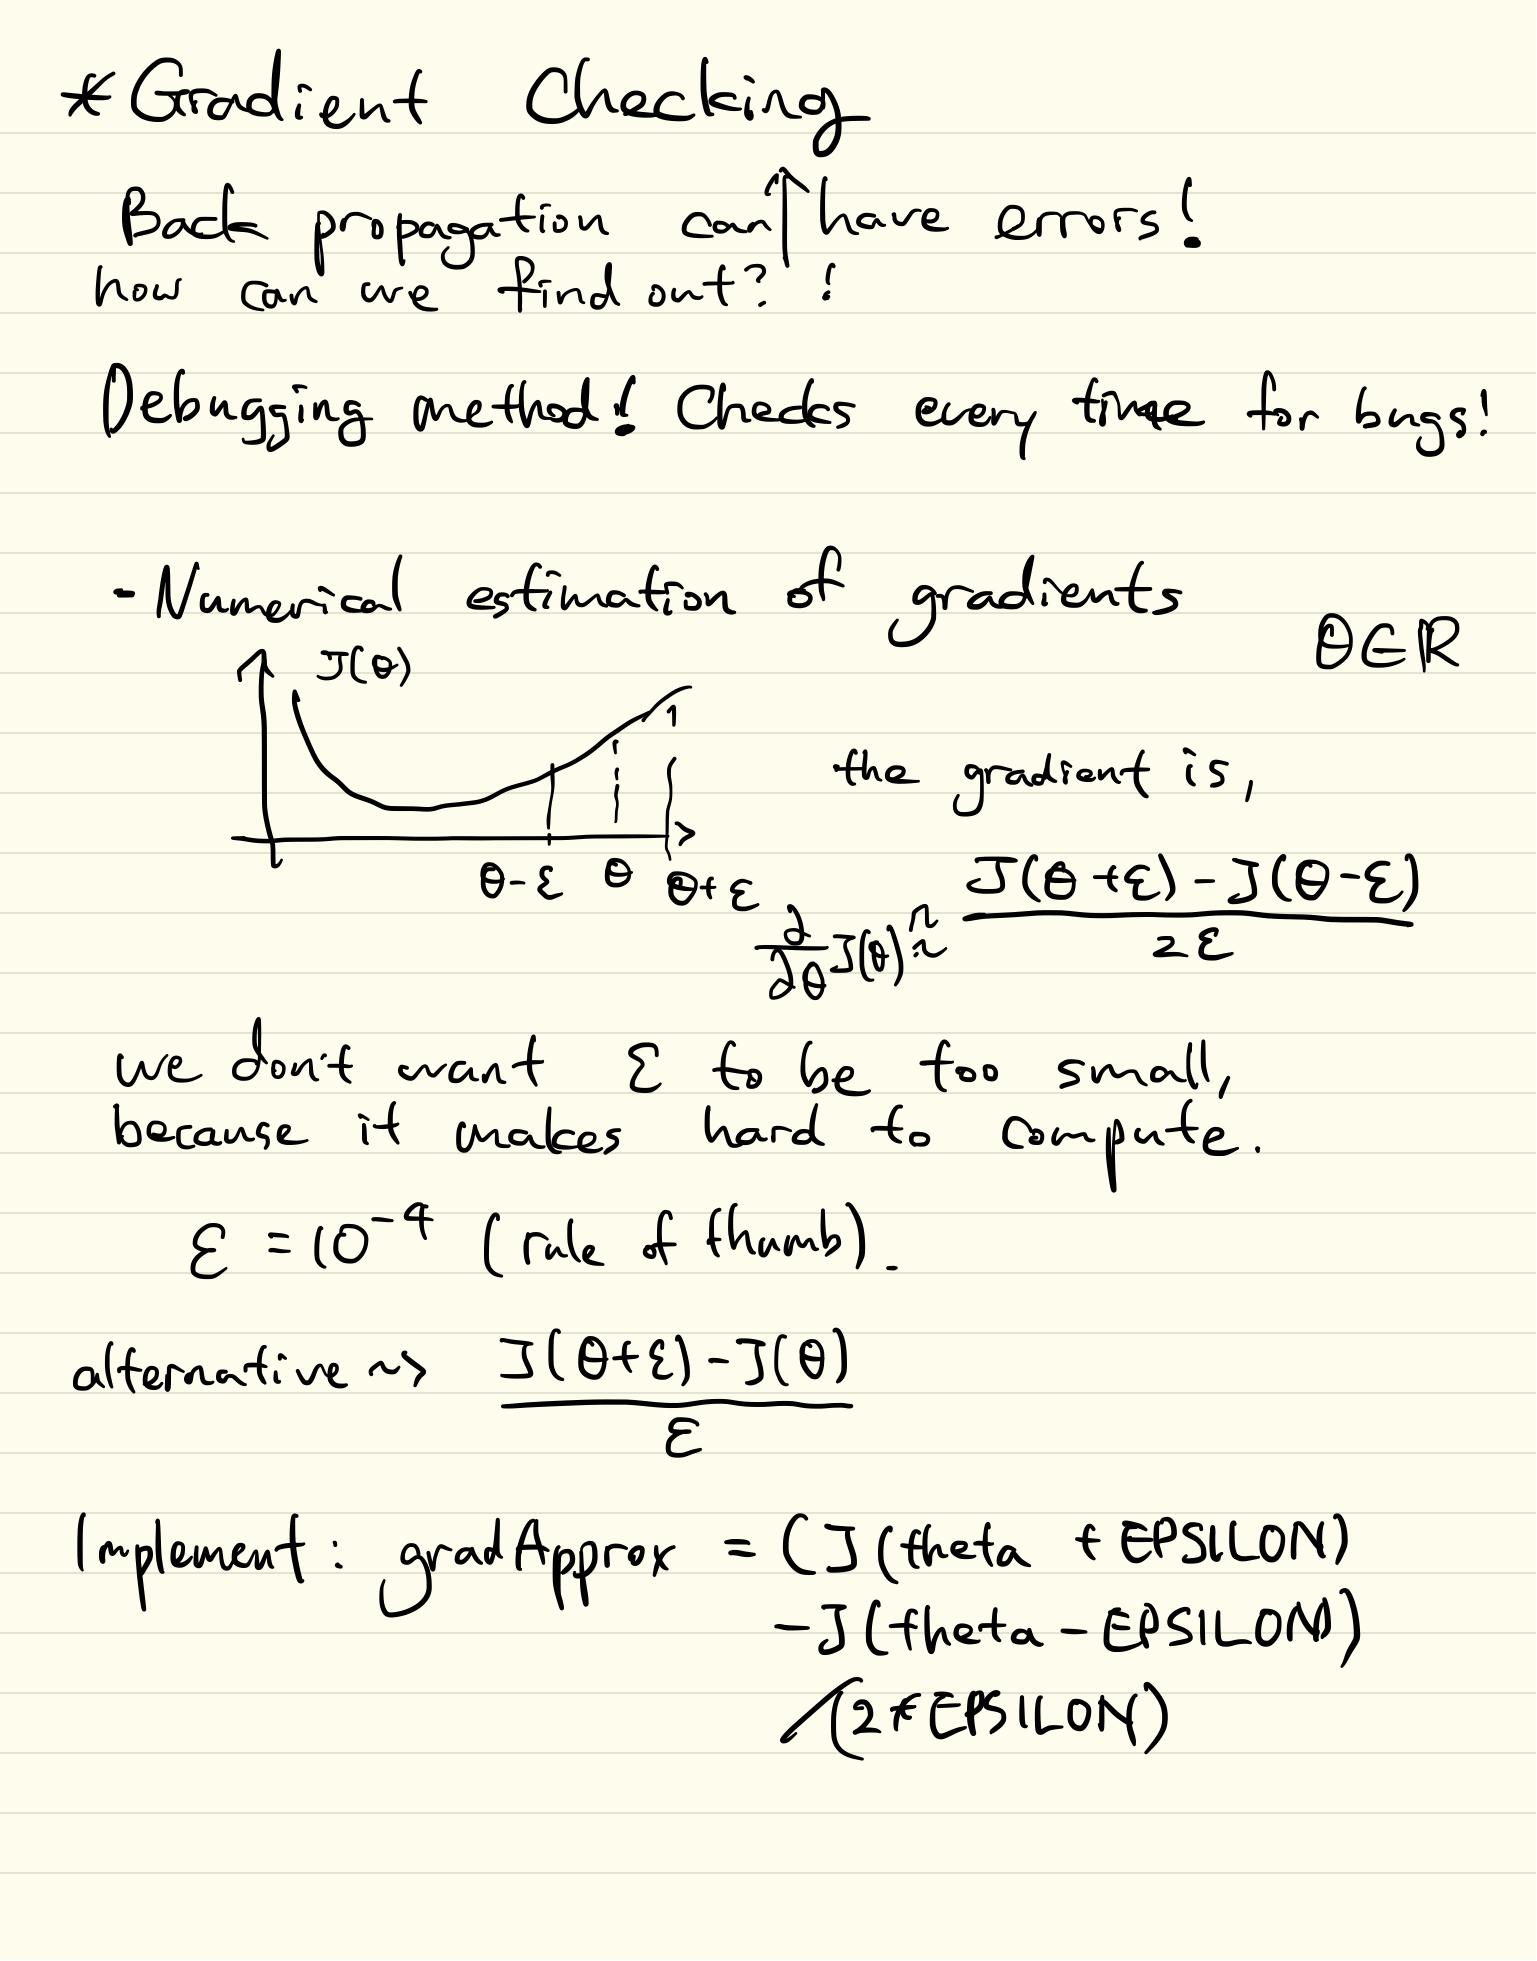 *Gradient Checking
Back propagation can ↑ have errors!
how can we find out? !
Debugging method! Checks every time for bugs!
- Numerical estimation of gradients
θ∈ℝ
J(θ)
the gradient is,
θ-ε θ θ+ε
∂/∂θ J(θ) ≈ (J(θ+ε)-J(θ-ε))/2ε
we don't want ε to be too small,
because it makes hard to compute.
ε = 10^-4 (rule of thumb).
alternative ~> (J(θ+ε)-J(θ))/ε
Implement: gradApprox = (J(theta + EPSILON)
-J(theta - EPSILON))
/(2*EPSILON)